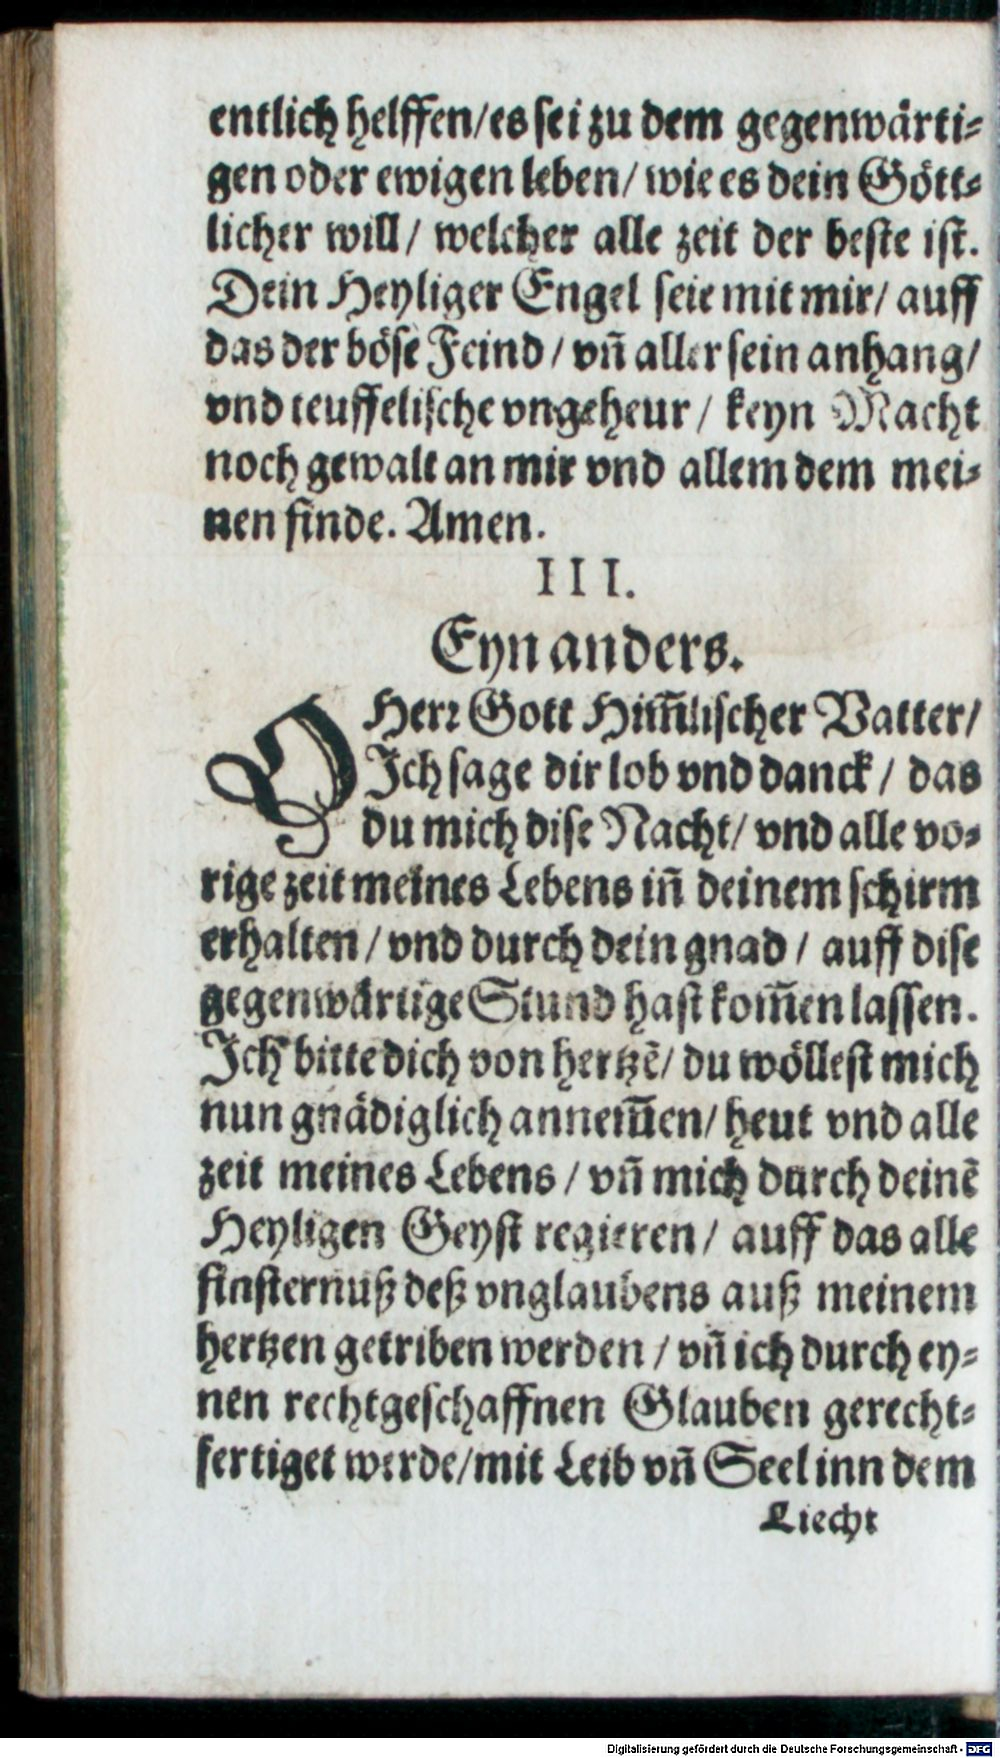 entlich helffen/es sei zu dem gegenwärti-
gen oder ewigen leben/ wie es dein Gött-
licher will/ welcher alle zeit der beste ist.
Dein Heyliger Engel seie mit mir/ auff
das der böse Feind/ vñ aller sein anhang/
vnd teuffelische vngeheur/ keyn Macht
noch gewalt an mir vnd allem dem mei-
nen finde. Amen.
III.
Eyn anders.
O Herr Gott Him̃lischer Vatter/
Ich sage dir lob vnd danck/ das
du mich dise Nacht/ vnd alle vo-
rige zeit meines Lebens iñ deinem schirm
erhalten/ vnd durch dein gnad/ auff dise
gegenwärtige Stund hast kom̃en lassen.
Ich bitte dich von hertzẽ/ du wöllest mich
nun gnädiglich annem̃en/ heut vnd alle
zeit meines Lebens/ vñ mich durch deinẽ
Heyligen Geyst regieren/ auff das alle
finsternuß deß vnglaubens auß meinem
hertzen getriben werden/ vñ ich durch ey-
nen rechtgeschaffnen Glauben gerecht-
fertiget werde/mit Leib vñ Seel inn dem
Liecht
Digitalisierung gefördert durch die Deutsche Forschungsgemeinschaft - DFG